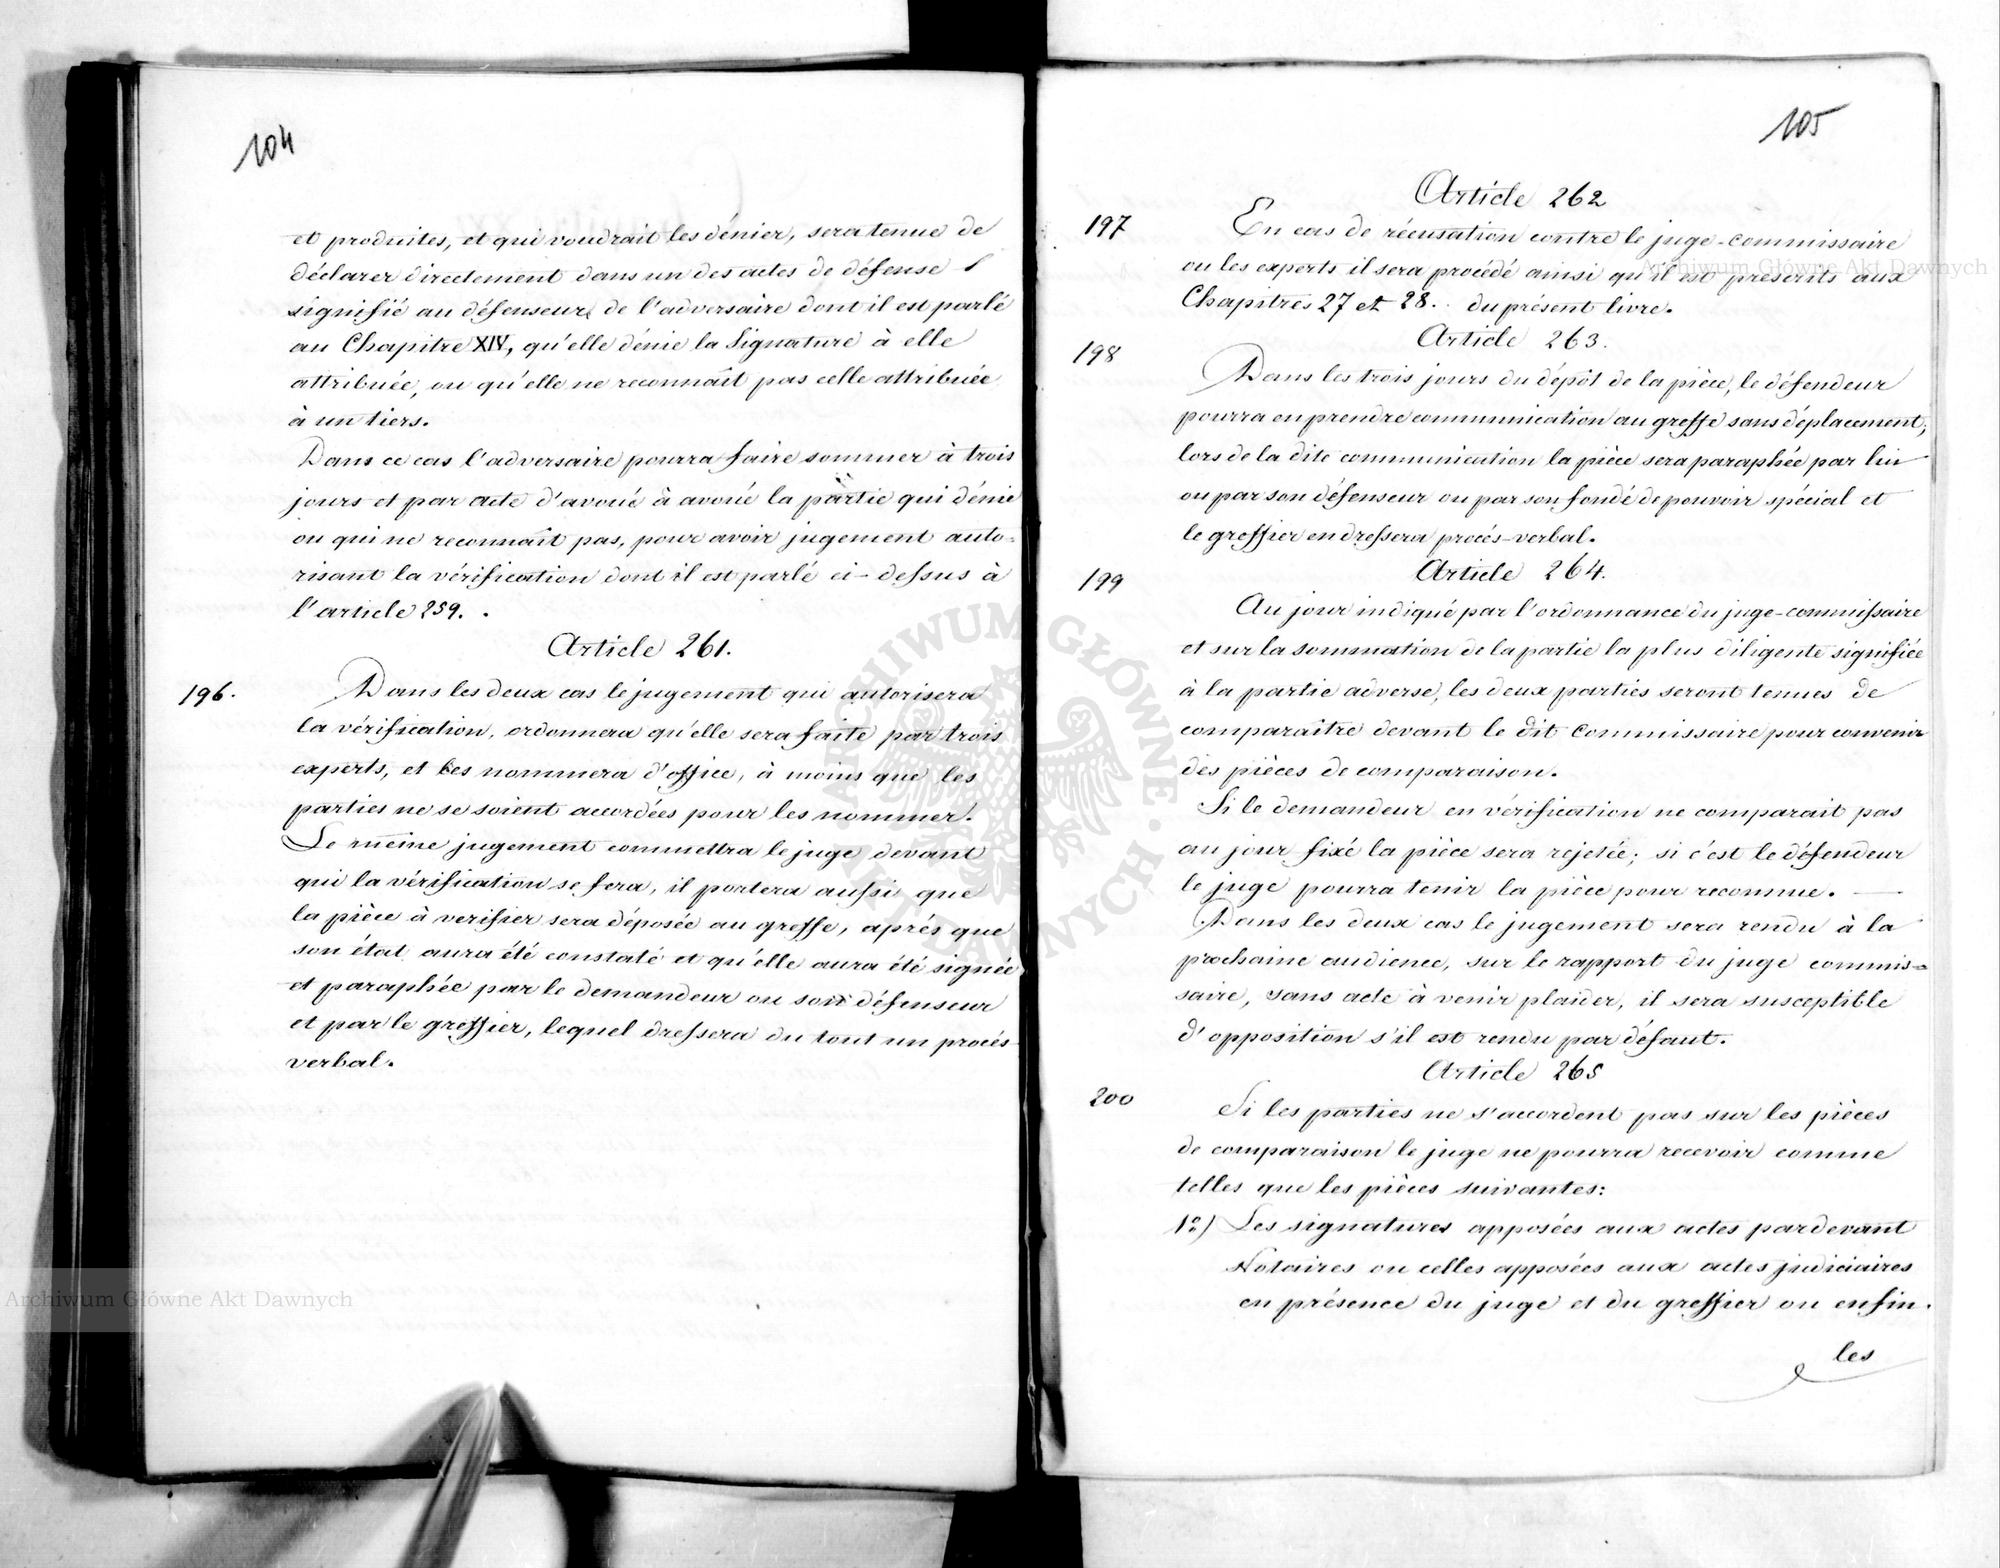 104
et produites, et qui voudrait les dénier, sera tenue de
déclarer directement dans un des actes de défense
signifié au défenseur de l'adversaire dont il est parlé
au Chapitre XIV, qu'elle dénie la Signature à elle
attribuée, ou qu'elle ne reconnaît pas celle attribuée
à un tiers.
Dans ce cas l'adversaire pourra faire sommer à trois
jours et par acte d'avoué à avoué la partie qui dénie
ou qui ne reconnaît pas, pour avoir jugement auto-
risant la vérification dont il est parlé ci-dessus à
l'article 259.
Article 261.
196.
Dans les deux cas le jugement qui autorisera
la vérification, ordonnera qu'elle sera faite par trois
experts, et les nommera d'office, à moins que les
parties ne se soient accordées pour les nommer.
Le même jugement commettra le juge devant
qui la vérification se fera, il portera aussi que
la pièce à verifier sera déposée au greffe, après que
son état aura été constaté et qu'elle aura été signée
et paraphée par le demandeur ou son défenseur
et par le greffier, lequel dressera du tout un procés
verbal.
105
Article 262
197
En cas de récusation contre le juge-commissaire
ou les experts il sera procédé ainsi qu'il est préscrits aux
Chapitres 27 et 28. du présent livre.
Article 263.
198
Dans les trois jours du dépôt de la pièce, le défendeur
pourra en prendre communication au greffe sans déplacement,
lors de la dite communication la pièce sera paraphée par lui
ou par son défenseur ou par son fondé de pouvoir spécial et
le greffier en dressera procés-verbal.
Article 264.
199
Au jour indiqué par l'ordonnance du juge-commissaire
et sur la sommation de la partie la plus diligente signifiée
à la partie adverse, les deux parties seront tenues de
comparaître devant le dit Commissaire pour convenir
des pièces de comparaison.
Si le demandeur en vérification ne comparait pas
au jour fixé la pièce sera rejetée; si c'est le défendeur
le juge pourra tenir la pièce pour reconnue. —
Dans les deux cas le jugement sera rendu à la
prochaine audience, sur le rapport du juge commis-
saire, sans acte à venir plaider, il sera susceptible
d'opposition s'il est rendu par défaut.
Article 265
200
Si les parties ne s'accordent pas sur les pièces
de comparaison le juge ne pourra recevoir comme
telles que les pièces suivantes:
1º) Les signatures apposées aux actes pardevant
Notaires ou celles apposées aux actes judiciaires
en présence du juge et du greffier ou enfin
les
Archiwum Główne Akt Dawnych
Archiwum Główne Akt Dawnych
ARCHIWUM GŁÓWNE AKT DAWNYCH